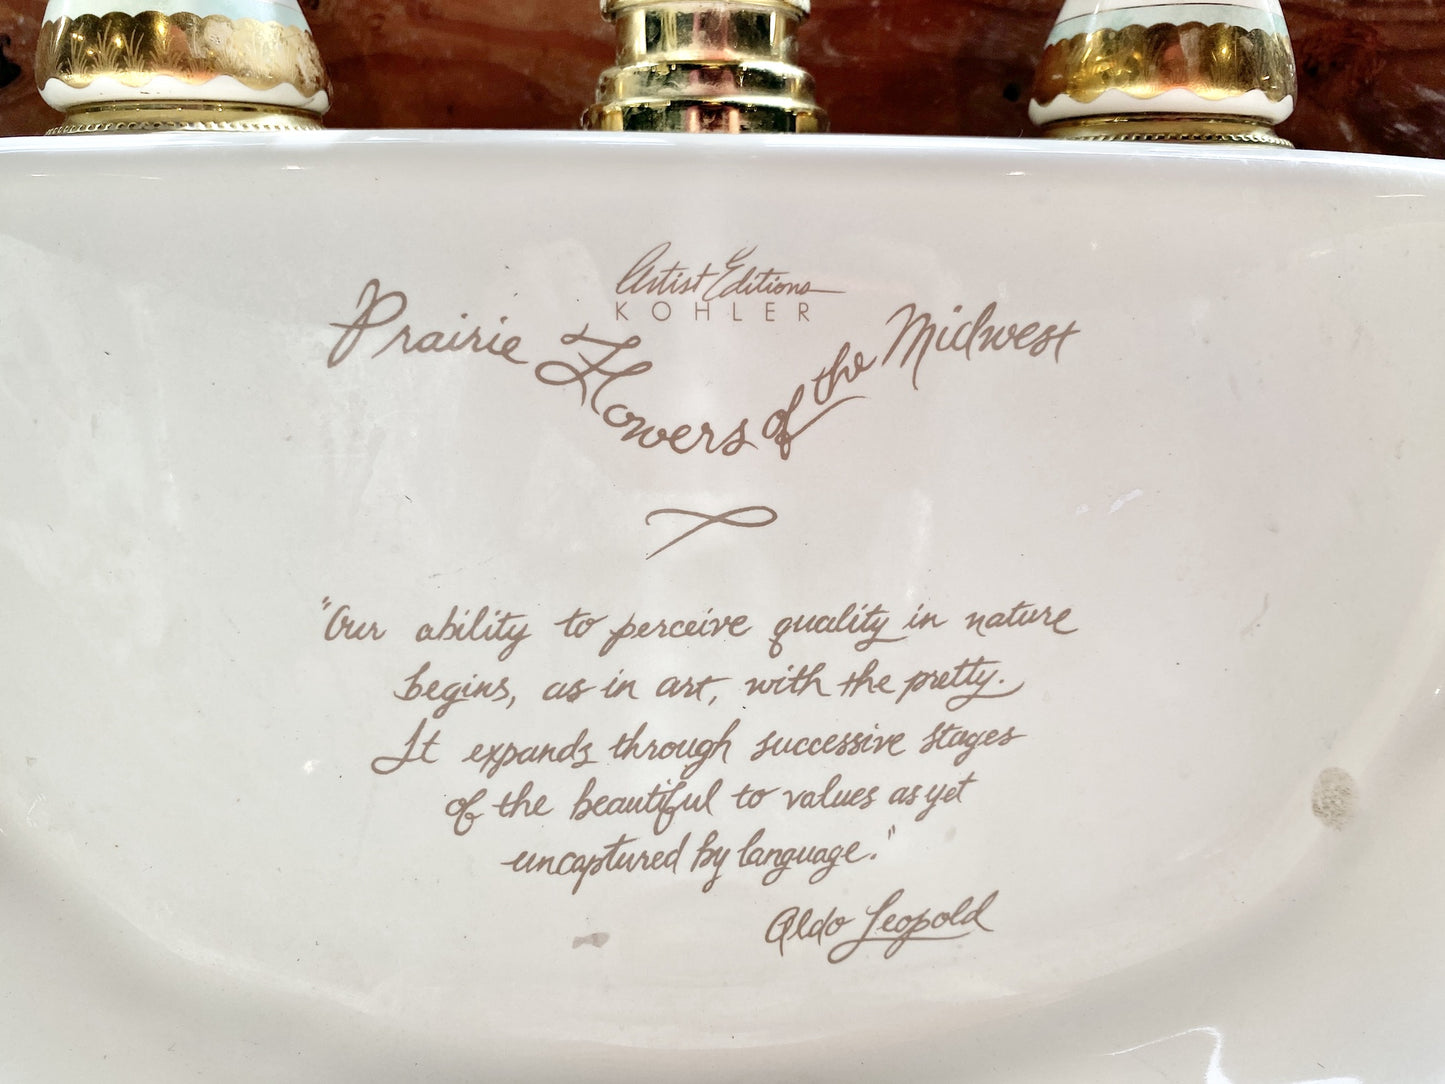 Artist Editions
KOHLER
Prairie Flowers of the Midwest
"Our ability to perceive quality in nature
begins, as in art, with the pretty.
It expands through successive stages
of the beautiful to values as yet
uncaptured by language."
Aldo Leopold